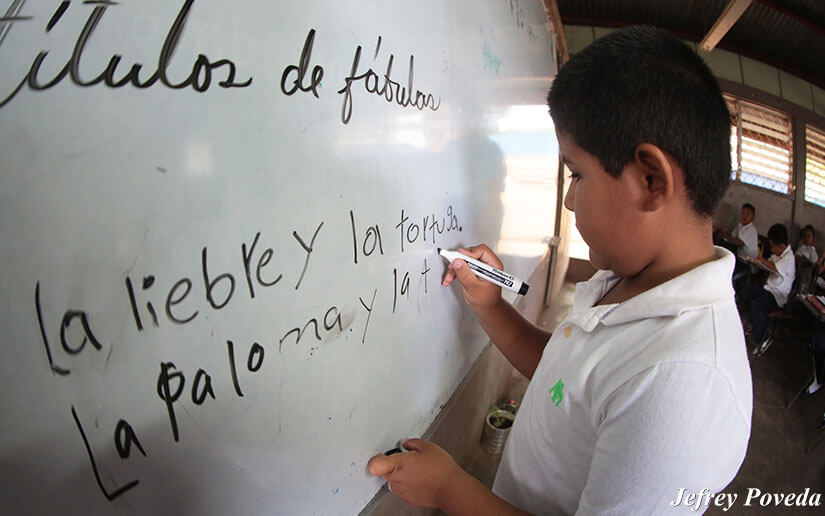 títulos de fábulas
La liebre y la tortuga.
La paloma y la t
Jefrey Poveda